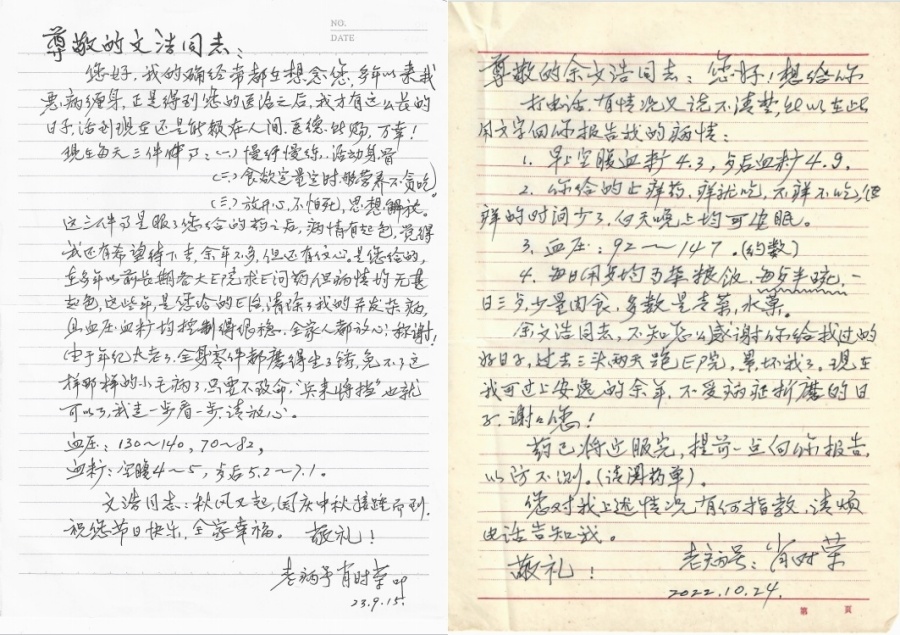 NO.
DATE
尊敬的文浩同志：
您好，我的确经常都在想念您，多年以来我
患病缠身，正是得到您的医治之后，我才有这么长的
日子，活到现在还是能赖在人间。医德 万幸！
现在每天三件 ：(一) 慢行慢练、活动身骨
(二) 食饮定量定时、够营养不贪吃
(三) 放开心，不怕死，思想解放。
这三件 是服了您给的药之后，病情有起色，觉得
我还有希望待下去，余年不多，但还有 心，是您给的，
在多年以前长期各大医院求医问药但病情均无甚
起色，这些年，是您给的医治，清除了我的并发杂病，
且血压血糖均控制得很稳。全家人都放心！称谢！
由于年纪太老了，全身零件都磨得生了锈，免不了这
样那样的小毛病了，只要不致命，"兵来将挡"也就
可以了，我走一步看一步，请放心。
血压：130～140，70～82，
血糖：空腹4～5，岁后5.2～7.1。
文浩同志：秋风又起，国庆中秋接踵而到，
祝您节日快乐，全家幸福。 敬礼！
老病号 肖时荣 叩
23.9.15.
尊敬的余文浩同志：您好！想给你
打电话，有情况又说不清楚，所以在此
用文字向你报告我的病情：
1. 早上空腹血糖4.3，歺后血糖4.9。
2. 你给的止痒药，痒就吃，不痒不吃，但
痒的时间少了，白天晚上均可安眠。
3. 血压：92～147。(约数)
4. 每日用歺均 杂粮饭，每歺半碗，一
日三歺，少量肉食，多数是青菜，水菓。
余文浩同志，不知怎么感谢你给我过的
好日子，过去三头两天跑医院，累坏我了。现在
我可过上安逸的余年，不受病症折磨的日
子。谢谢您！
药已将近服完，提前一点向你报告，
以防不测。(请 药单)
您对我上述情况，有何指教，请烦
电话告知我。
敬礼！ 老病号：肖时荣
2022.10.24.
第 頁